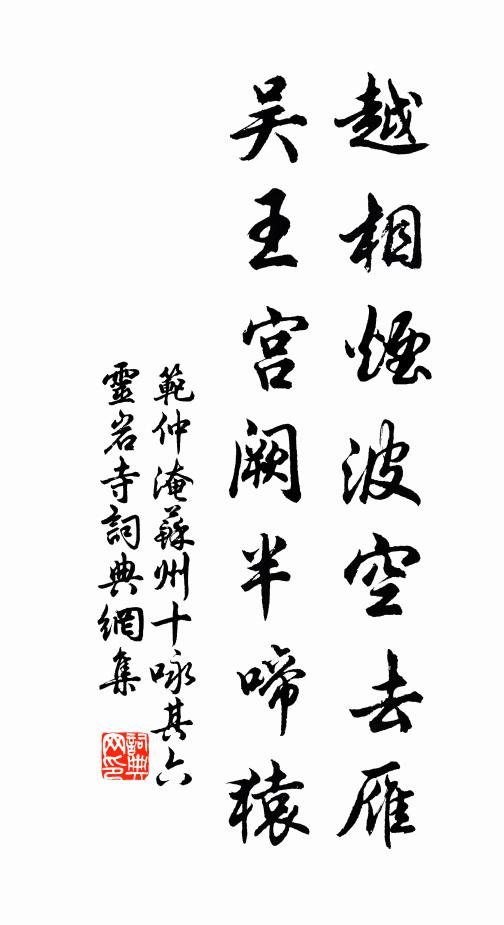 越相煙波空去雁
吴王宫阙半啼猿
範仲淹蘇州十咏其六
靈岩寺詞典網集
詞典
网印